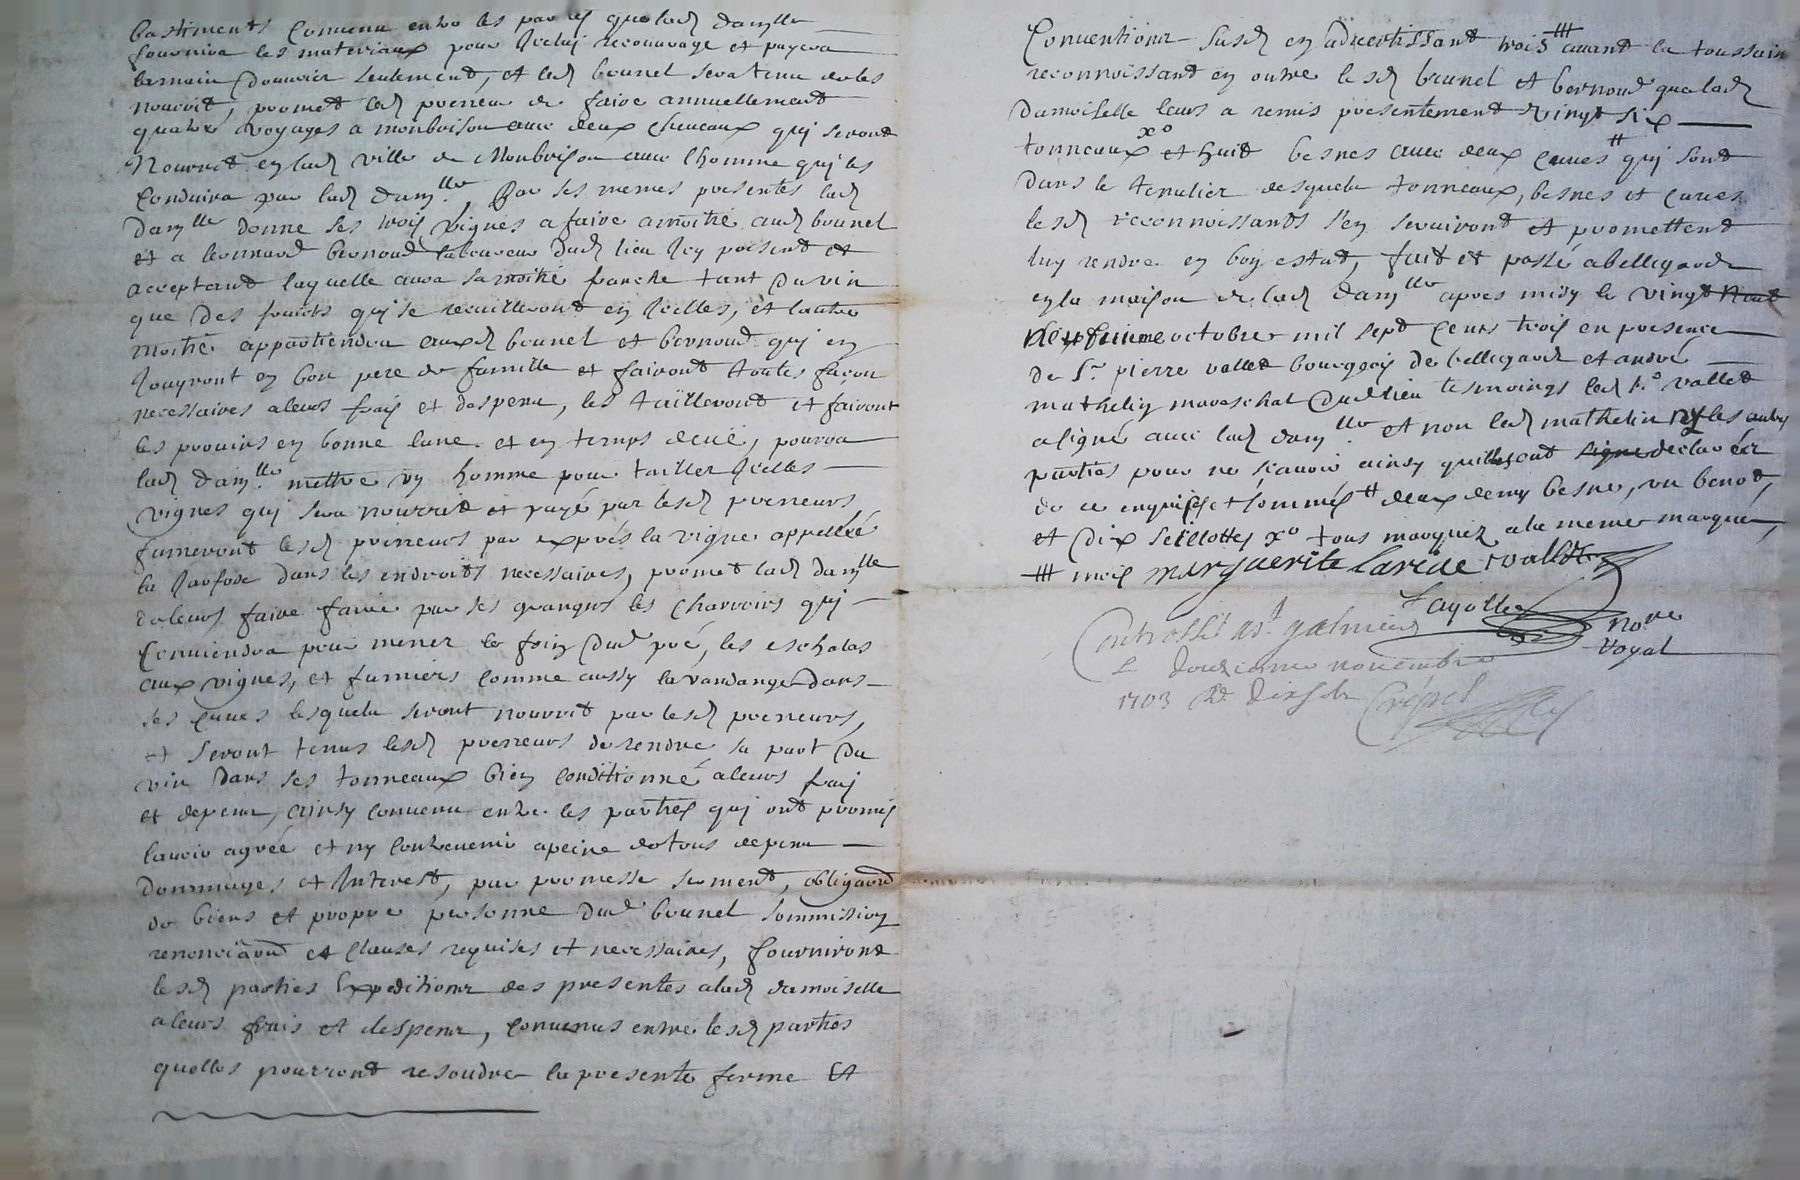 bastiments convenu entre les parties que lad damlle
fournira les materiaux pour Iceluy recouvrage et payera
la main douvrier seulement, et led brunel sera tenu de les
nourrit, promet led preneur de faire annuellement
quatre voyages a monbrison avec deux chevaux quy seront
Nourrit en lad ville de Monbrison avec lhomme quy les
Conduira par lad damlle. Par ses memes presentes lad
damlle donne ses trois vignes a faire a moitié aud brunel
et a leonnard bernoud laboureur dud lieu Icy present et
acceptant laquelle aura sa moitié franche tant du vin
que des fruits quy se recuilleront en Icelles, et lautre
moitié appartiendra auxd brunel et bernoud quy en
Jouyront en bon pere de famille et fairont toutes façon
necessaires a leurs frais et despens, les tailleront et fairont
les provins en bonne lune et en temps deue, pourra
lad damlle. mettre un homme pour tailler Icelles
vignes quy sera nourrit et payé par lesd preneurs
fumeront lesd preneurs par exprés la vigne appellée
la dans les endroits necessaires, promet lad damlle
de leurs faire faire par ses grangers les charrois quy
Conviendra pour mener le foin dud pré, les eschalas
aux vignes, et fumiers comme aussy la vandange dans
ses cuves lesquels seront nourrit par lesd preneurs,
et seront tenus lesd preneurs de rendre sa part du
vin dans ses tonneaux bien conditionné a leurs frais
et depens, ainsy convenu entre les parties quy ont promis
lavoir agréé et ny contrevenir a peine de tous depens
dommages et Interest, par promesse serment, obligaōn
de biens et propre personne dud brunel sommission
renonciaōn et clauses requises et necessaires, fourniront
lesd parties Expeditions des presentes a lad damoiselle
a leurs frais et despens, convenus entre lesd parties
quelles pourront resoudre la presente ferme et
Conventions susd en advertissant trois ⧻ avant la toussain
reconnoissant en outre lesd brunel et bernoud que lad
damoiselle leurs a remis presentement vingt six
tonneaux xo et huit besnes avec deux cuves # quy sont
dans le tenalier desquels tonneaux, besnes et cuves
lesd reconnoissants s'en serviront et promettent
luy rendre en bon estat, fait et passé a bellegarde
en la maison de lad damlle apres midy le vingt neuf
neufviême octobre mil sept cents trois en presence
de Sr. pierre vallet bourgeois de bellegarde et andré
mathelin mareschal dud lieu tesmoings led Sr vallet
a signé avec lad damlle. et non led mathelin ny les autres
parties pour ne sçavoir ainsy quils ont signe declarér
de ce enquis et sommés # deux demy besnes, un benot,
et dix seillottes xo tous marquez a la meme marque,
⧻ mois marguerite Lariüe Vallet
Fayolle
Nore
Royal
Controllé a St. galmier
le douzieme novembre
1703 Rd dix sols Crépet